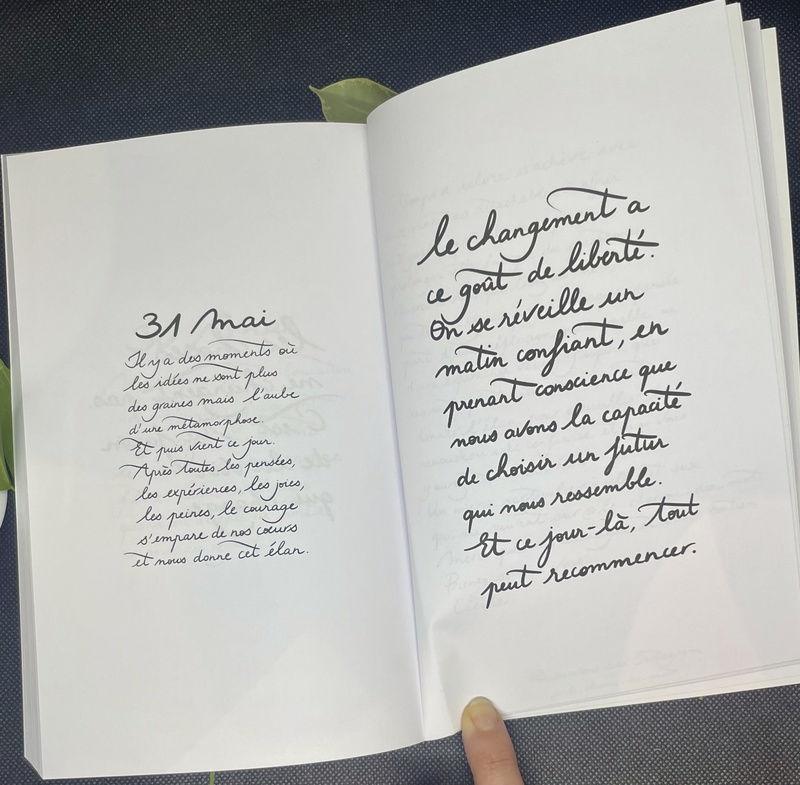 31 Mai
Il y a des moments où
les idées ne sont plus
des graines mais l'aube
d'une métamorphose.
Et puis vient ce jour.
Après toutes les pensées,
les expériences, les joies,
les peines, le courage
s'empare de nos cœurs
et nous donne cet élan.
le changement a
ce goût de liberté.
On se réveille un
matin confiant, en
prenant conscience que
nous avons la capacité
de choisir un futur
qui nous ressemble.
Et ce jour-là, tout
peut recommencer.